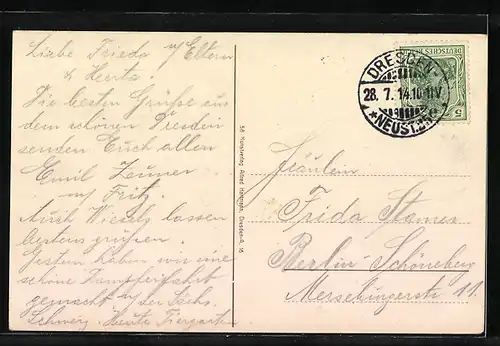 Liebe Frieda u/ Eltern
& Herta.
Die besten Grüße aus
dem schönen Dresden
senden Euch allen
Emil
u/ Fritz.
Auch lassen
bestens grüßen.
Gestern haben wir eine
schöne Dampferfahrt
gemacht der Sächs.
Schweiz. Heute Tiergarten
58 Kunstverlag Alfred Dresden-A. 16
DRESDEN
28. 7. 14. 10-11V.
*NEUST.
DEUTSCHES REICH
5
Fräulein
Frida
Berlin Schöneberg
Merseburgerstr 11.